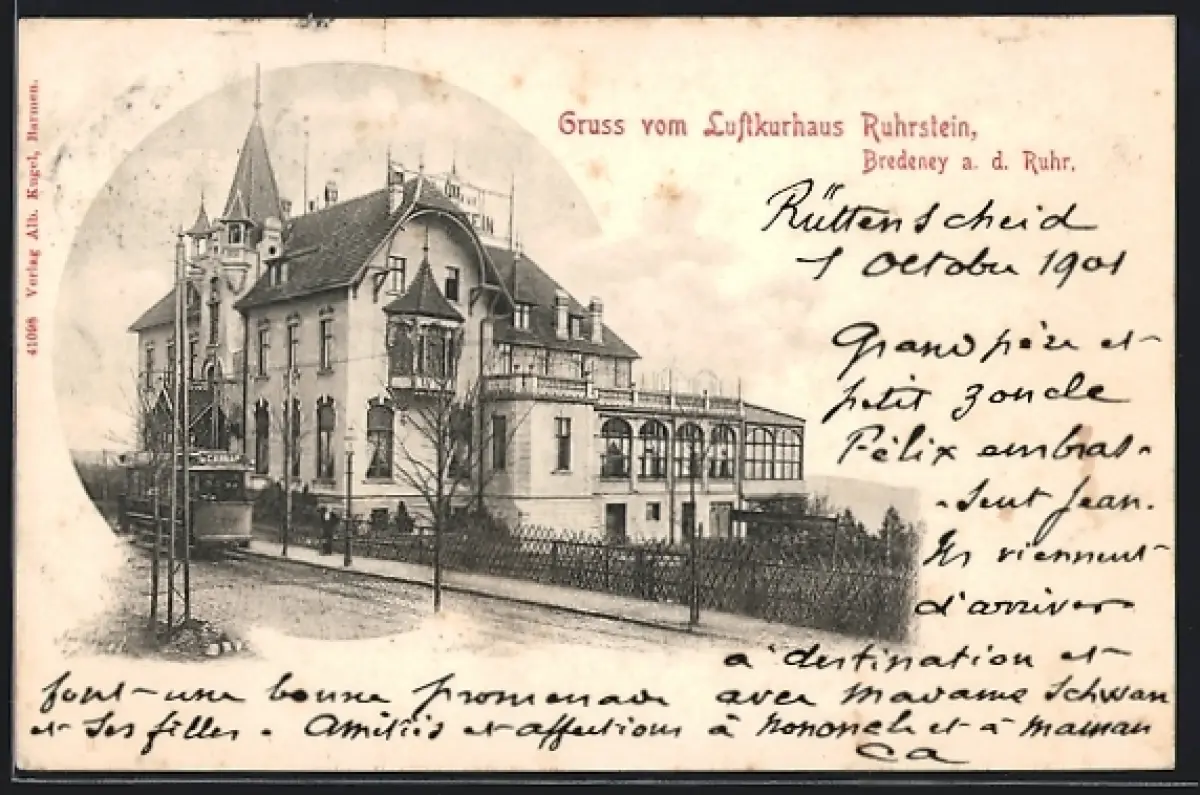 Gruss vom Luftkurhaus Ruhrstein,
Bredeney a. d. Ruhr.
41098 Verlag Alb. Kugel, Barmen.
Rüttenscheid
1 October 1901
Grand père et
petit zoncle
Félix embras-
-sent Jean.
Ils viennent
d'arriver
à destination et
font une bonne promenade avec Madame Schwan
et ses filles. Amitiés et affections à Nononcle et à maman
STEIN